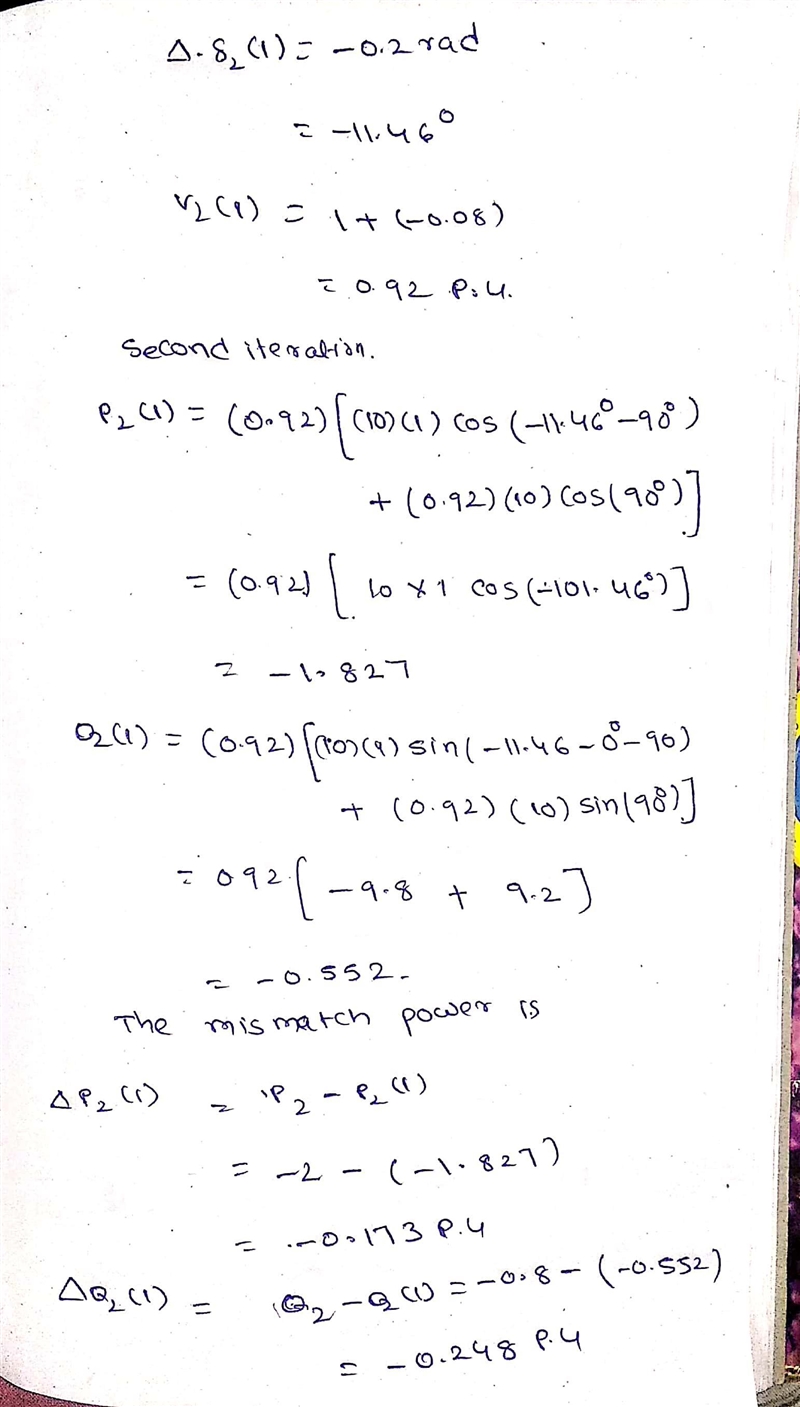 Δ.δ₂(1) = -0.2 rad
= -11.46°
V₂(1) = 1 + (-0.08)
= 0.92 P.U.
Second iteration.
P₂(1) = (0.92) [(10)(1) cos (-11.46° - 90°)
+ (0.92) (10) cos(90°)]
= (0.92) [ 10 x 1 cos (-101.46°)]
= -1.827
Q₂(1) = (0.92) [(10)(1) sin(-11.46 - 0° - 90)
+ (0.92) (10) sin(90°)]
= 092 [ -9.8 + 9.2 ]
= -0.552.
The mismatch power is
ΔP₂(1) = P₂ - P₂(1)
= -2 - (-1.827)
= -0.173 P.U
ΔQ₂(1) = Q₂ - Q(1) = -0.8 - (-0.552)
= -0.248 P.U